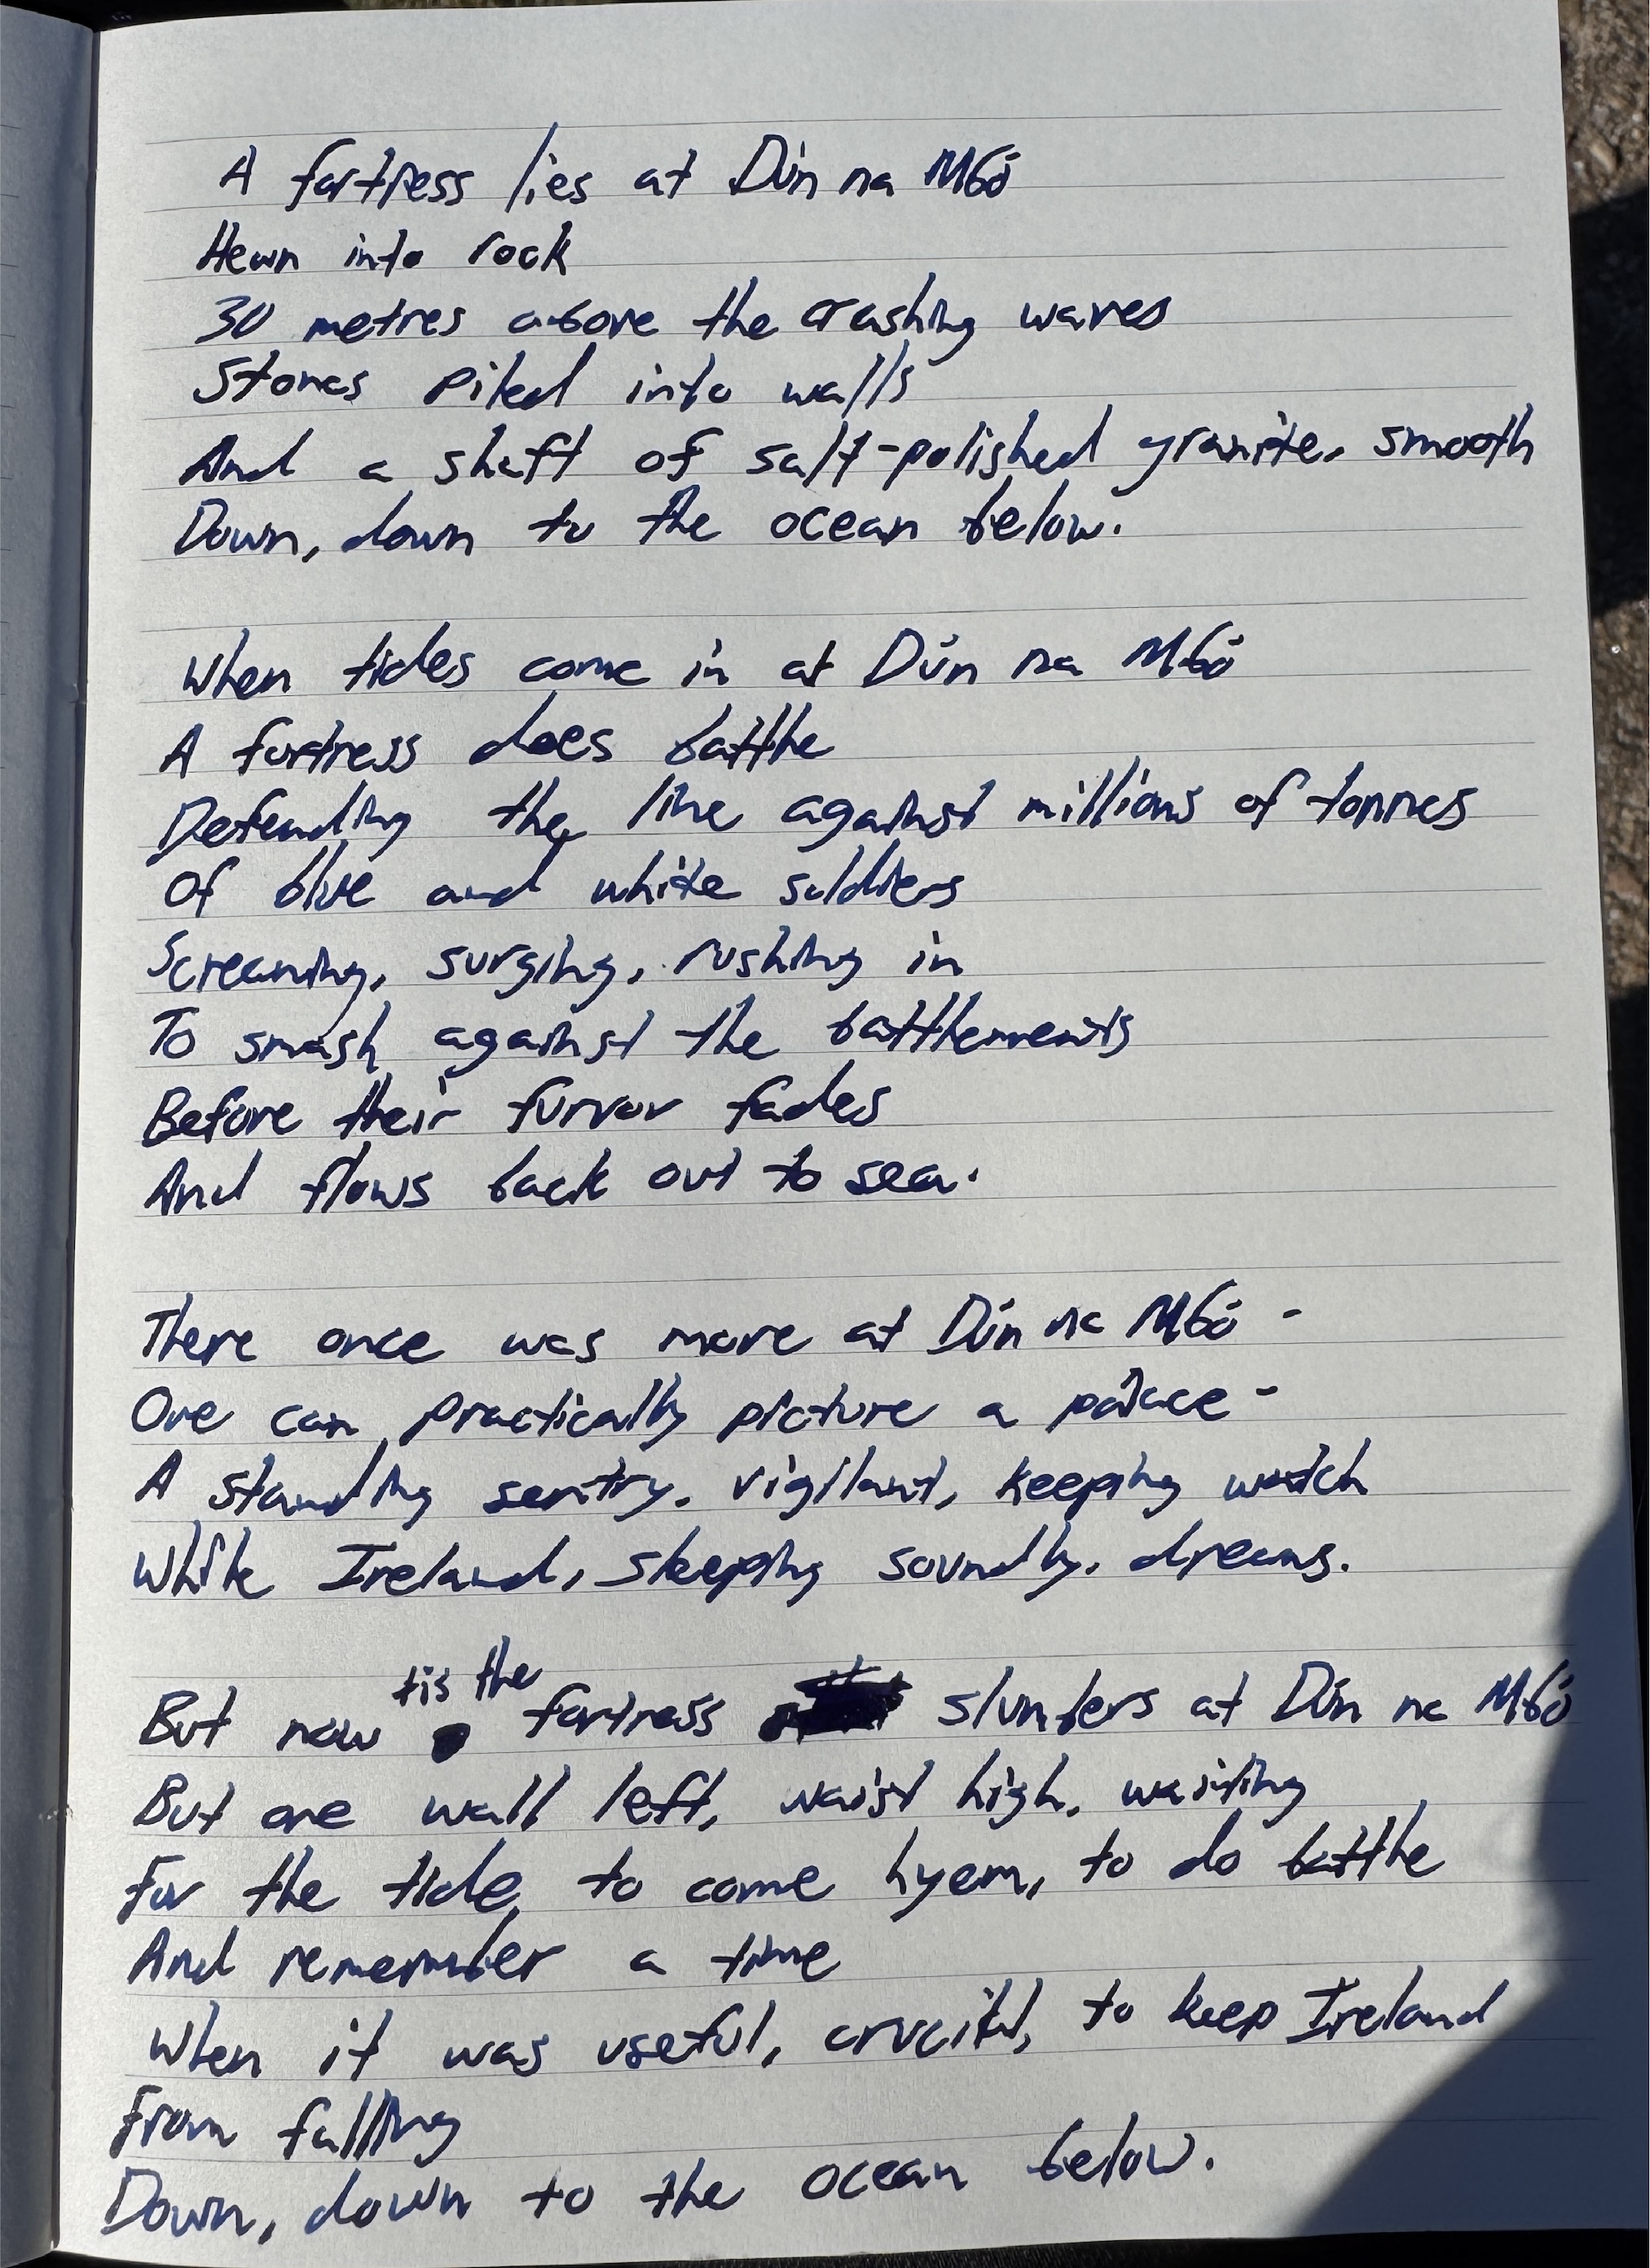 A fortress lies at Dún na Mbó
Hewn into rock
30 metres above the crashing waves
Stones piled into walls
And a shaft of salt-polished granite, smooth
Down, down to the ocean below.
When tides come in at Dún na Mbó
A fortress does battle
Defending the line against millions of tonnes
Of blue and white soldiers
Screaming, surging, rushing in
To smash against the battlements
Before their furvor fades
And flows back out to sea.
There once was more at Dún na Mbó -
One can practically picture a palace -
A standing sentry, vigilant, keeping watch
While Ireland, sleeping soundly, dreams.
But now tis the fortress slumbers at Dún na Mbó
But one wall left, waist high, waiting
For the tide to come hyem, to do battle
And remember a time
When it was useful, crucial, to keep Ireland
From falling
Down, down to the ocean below.